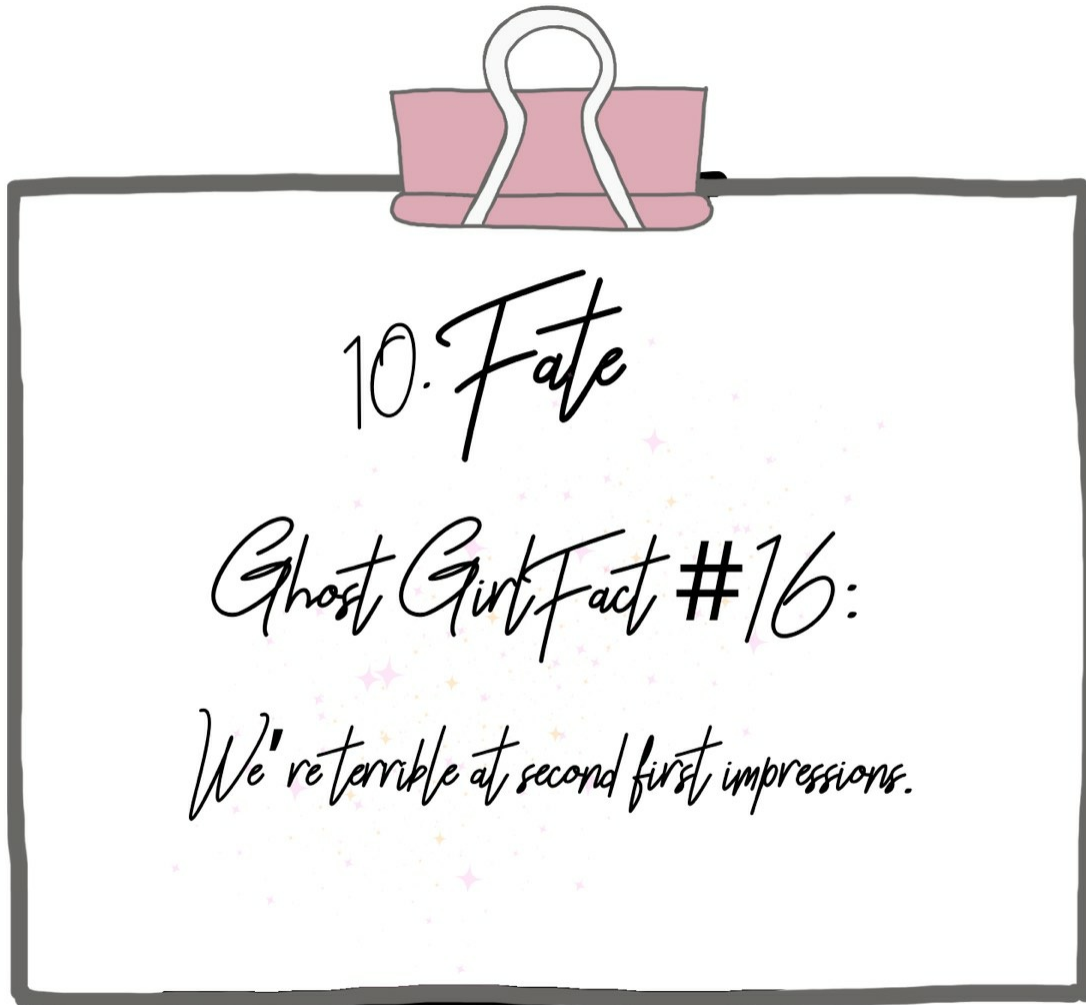 10. Fate
Ghost Girl Fact #16:
We're terrible at second first impressions.